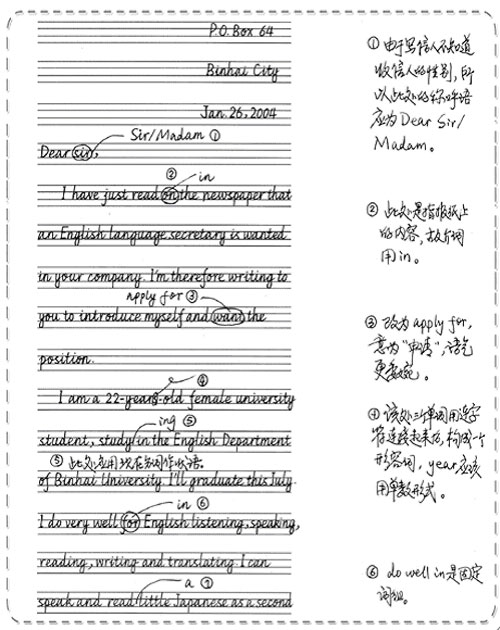 P.O. Box 64
Binhai City
Jan. 26, 2004
Sir/Madam ①
Dear sir,
② in
I have just read on the newspaper that
an English language secretary is wanted
in your company. I'm therefore writing to
apply for ③
you to introduce myself and want the
position.
④
I am a 22-years-old female university
ing ⑤
student, study in the English Department
⑤ 此处应用现在分词作状语。
of Binhai University. I'll graduate this July.
in ⑥
I do very well for English listening, speaking,
reading, writing and translating. I can
a ⑦
speak and read little Japanese as a second
① 由于写信人不知道
收信人的性别, 所
以此处的称呼语
应为 Dear Sir/
Madam。
② 此处是指报纸上
的内容, 故介词
用in。
③ 改为 apply for,
意为“申请”, 语气
更委婉。
④ 该处三个单词用连字
符连接起来后, 构成一个
形容词, year应该
用单数形式。
⑥ do well in是固定
词组。